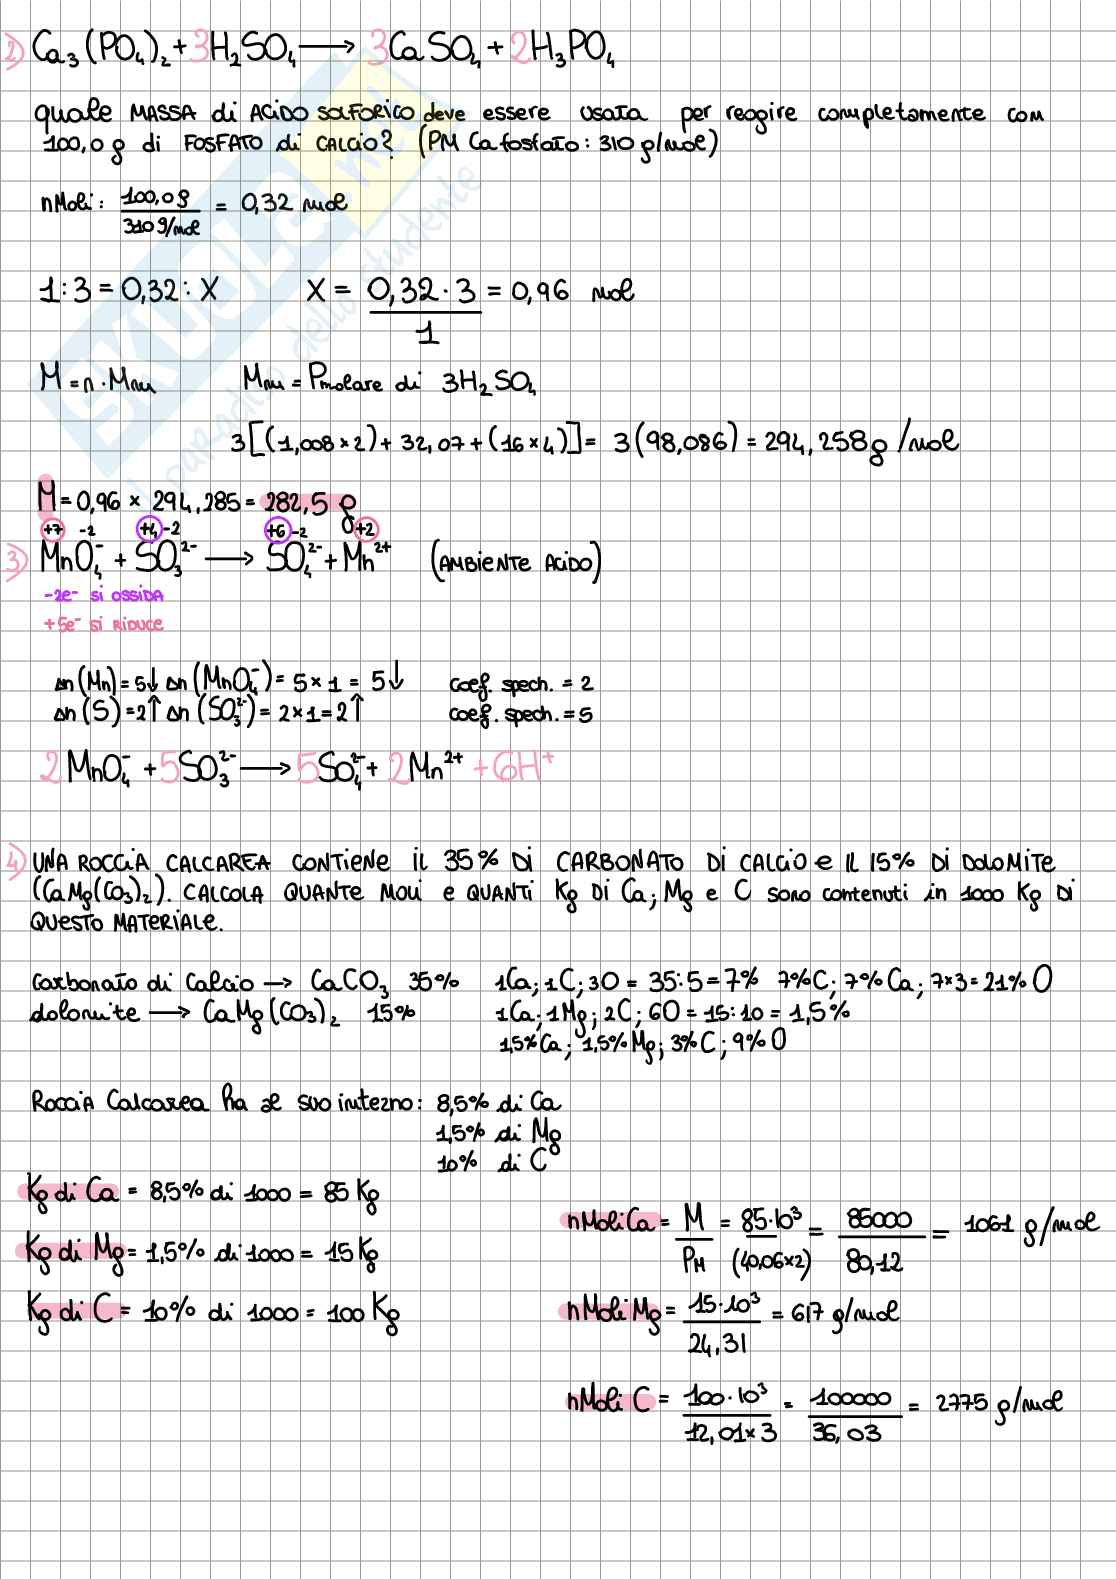 2) Ca₃(PO₄)₂ + 3H₂SO₄ → 3CaSO₄ + 2H₃PO₄
quale MASSA di ACiDO SOLFORiCO deve essere usata per reagire completamente con
100,0 g di FOSFATO di CALCiO? (PM Ca fosfato: 310 g/mol)
nMoli: 100,0g / 310 g/mol = 0,32 mol
1:3 = 0,32 : X X = 0,32 · 3 / 1 = 0,96 mol
M = n · Mm Mm = Pmolare di 3H₂SO₄
3[(1,008 × 2) + 32,07 + (16 × 4)] = 3(98,086) = 294,258g /mol
M = 0,96 × 294,285 = 282,5 g
+7 -2 +4 -2 +6 -2 +2
3) MnO₄⁻ + SO₃²⁻ → SO₄²⁻ + Mn²⁺ (AMBiENTE ACiDO)
-2e⁻ si OSSiDA
+5e⁻ si RiDUCE
Δn(Mn) = 5↓ Δn(MnO₄⁻) = 5 × 1 = 5↓ coef. spech. = 2
Δn(S) = 2↑ Δn(SO₃²⁻) = 2 × 1 = 2↑ coef. spech. = 5
2MnO₄⁻ + 5SO₃²⁻ → 5SO₄²⁻ + 2Mn²⁺ + 6H⁺
4) UNA ROCCiA CALCAREA CONTiENE iL 35% Di CARBONATO Di CALCiO e IL 15% Di DOLOMiTE
(CaMg(CO₃)₂). CALCOLA QUANTE MOLi e QUANTi Kg Di Ca; Mg e C sono contenuti in 1000 Kg Di
QUESTO MATERiALE.
Carbonato di Calcio → CaCO₃ 35% 1Ca; 1C; 3O = 35:5 = 7% 7%C; 7%Ca; 7×3 = 21% O
dolomite → CaMg(CO₃)₂ 15% 1Ca; 1Mg; 2C; 6O = 15:10 = 1,5%
1,5% Ca; 1,5% Mg; 3% C; 9% O
ROCCiA Calcarea ha al suo interno: 8,5% di Ca
1,5% di Mg
10% di C
Kg di Ca = 8,5% di 1000 = 85 Kg
Kg di Mg = 1,5% di 1000 = 15 Kg
Kg di C = 10% di 1000 = 100 Kg
nMoli Ca = M / PM = 85·10³ / (40,06×2) = 85000 / 80,12 = 1061 g/mol
nMoli Mg = 15·10³ / 24,31 = 617 g/mol
nMoli C = 100·10³ / 12,01×3 = 100000 / 36,03 = 2775 g/mol
SKUOLA.net
il paradiso dello studente